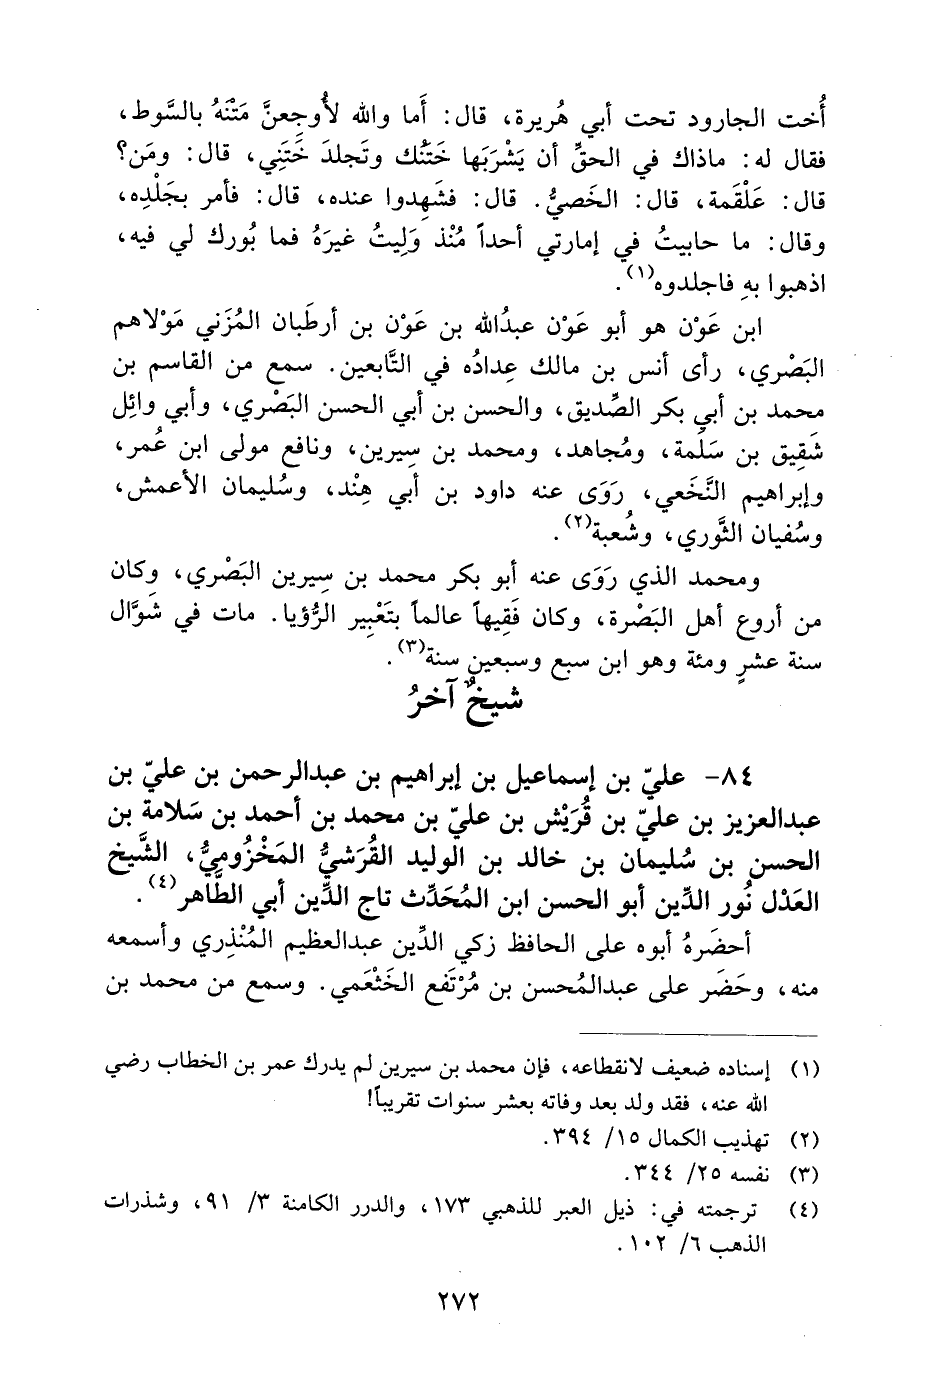 أُخت الجارود تحت أبي هُريرة، قال: أَما والله لأُوجِعنَّ مَتْنَهُ بالسَّوط،
فقال له: ماذاك في الحقِّ أن يَشْرَبَها خَتَنُك وتَجلدَ خَتَنِي، قال: ومَن؟
قال: عَلْقَمة، قال: الخَصيُّ. قال: فشَهِدوا عنده، قال: فأمر بجَلْدِه،
وقال: ما حابيتُ في إمارتي أحداً مُنْذ وَلِيتُ غيرَهُ فما بُورك لي فيه،
اذهبوا بهِ فاجلدوه(١).
ابن عَوْن هو أبو عَوْن عبدُالله بن عَوْن بن أرطَبان المُزَني مَوْلاهم
البَصْري، رأى أنس بن مالك عِدادُه في التَّابعين. سمع من القاسم بن
محمد بن أبي بكر الصِّديق، والحسن بن أبي الحسن البَصْري، وأبي وائِل
شَقِيق بن سَلَمة، ومُجاهد، ومحمد بن سِيرين، ونافع مولى ابن عُمر،
وإبراهيم النَّخَعي، رَوَى عنه داود بن أبي هِنْد، وسُليمان الأعمش،
وسُفيان الثَّوري، وشُعبة(٢).
ومحمد الذي رَوَى عنه أبو بكر محمد بن سِيرين البَصْري، وكان
من أروع أهل البَصْرة، وكان فَقِيهاً عالماً بتَعْبِير الرُّؤيا. مات في شَوَّال
سنة عشرٍ ومئة وهو ابن سبع وسبعين سنة(٣).
شيخٌ آخرُ
٨٤- عليّ بن إسماعيل بن إبراهيم بن عبدالرحمن بن عليّ بن
عبدالعزيز بن عليّ بن قُرَيْش بن عليّ بن محمد بن أحمد بن سَلامة بن
الحسن بن سُليمان بن خالد بن الوليد القُرَشيُّ المَخْزُوميُّ، الشَّيخ
العَدْل نُور الدِّين أبو الحسن ابن المُحَدِّث تاج الدِّين أبي الطَّاهر(٤).
أحضَرهُ أبوه على الحافظ زكي الدِّين عبدالعظيم المُنْذِري وأسمعه
منه، وحَضَر على عبدالمُحسن بن مُرْتَفع الخَثْعَمي. وسمع من محمد بن
(١) إسناده ضعيف لانقطاعه، فإن محمد بن سيرين لم يدرك عمر بن الخطاب رضي
الله عنه، فقد ولد بعد وفاته بعشر سنوات تقريباً!
(٢) تهذيب الكمال ١٥/ ٣٩٤.
(٣) نفسه ٢٥/ ٣٤٤.
(٤) ترجمته في: ذيل العبر للذهبي ١٧٣، والدرر الكامنة ٣/ ٩١، وشذرات
الذهب ٦/ ١٠٢.
٢٧٢